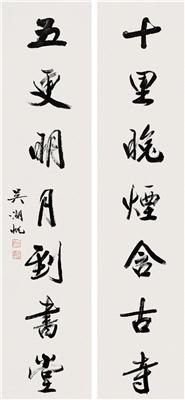 十里晚煙含古寺
五更明月到書堂
吳湖帆